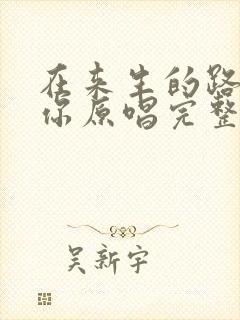 在来生的路
你原唱完整
吴新宇